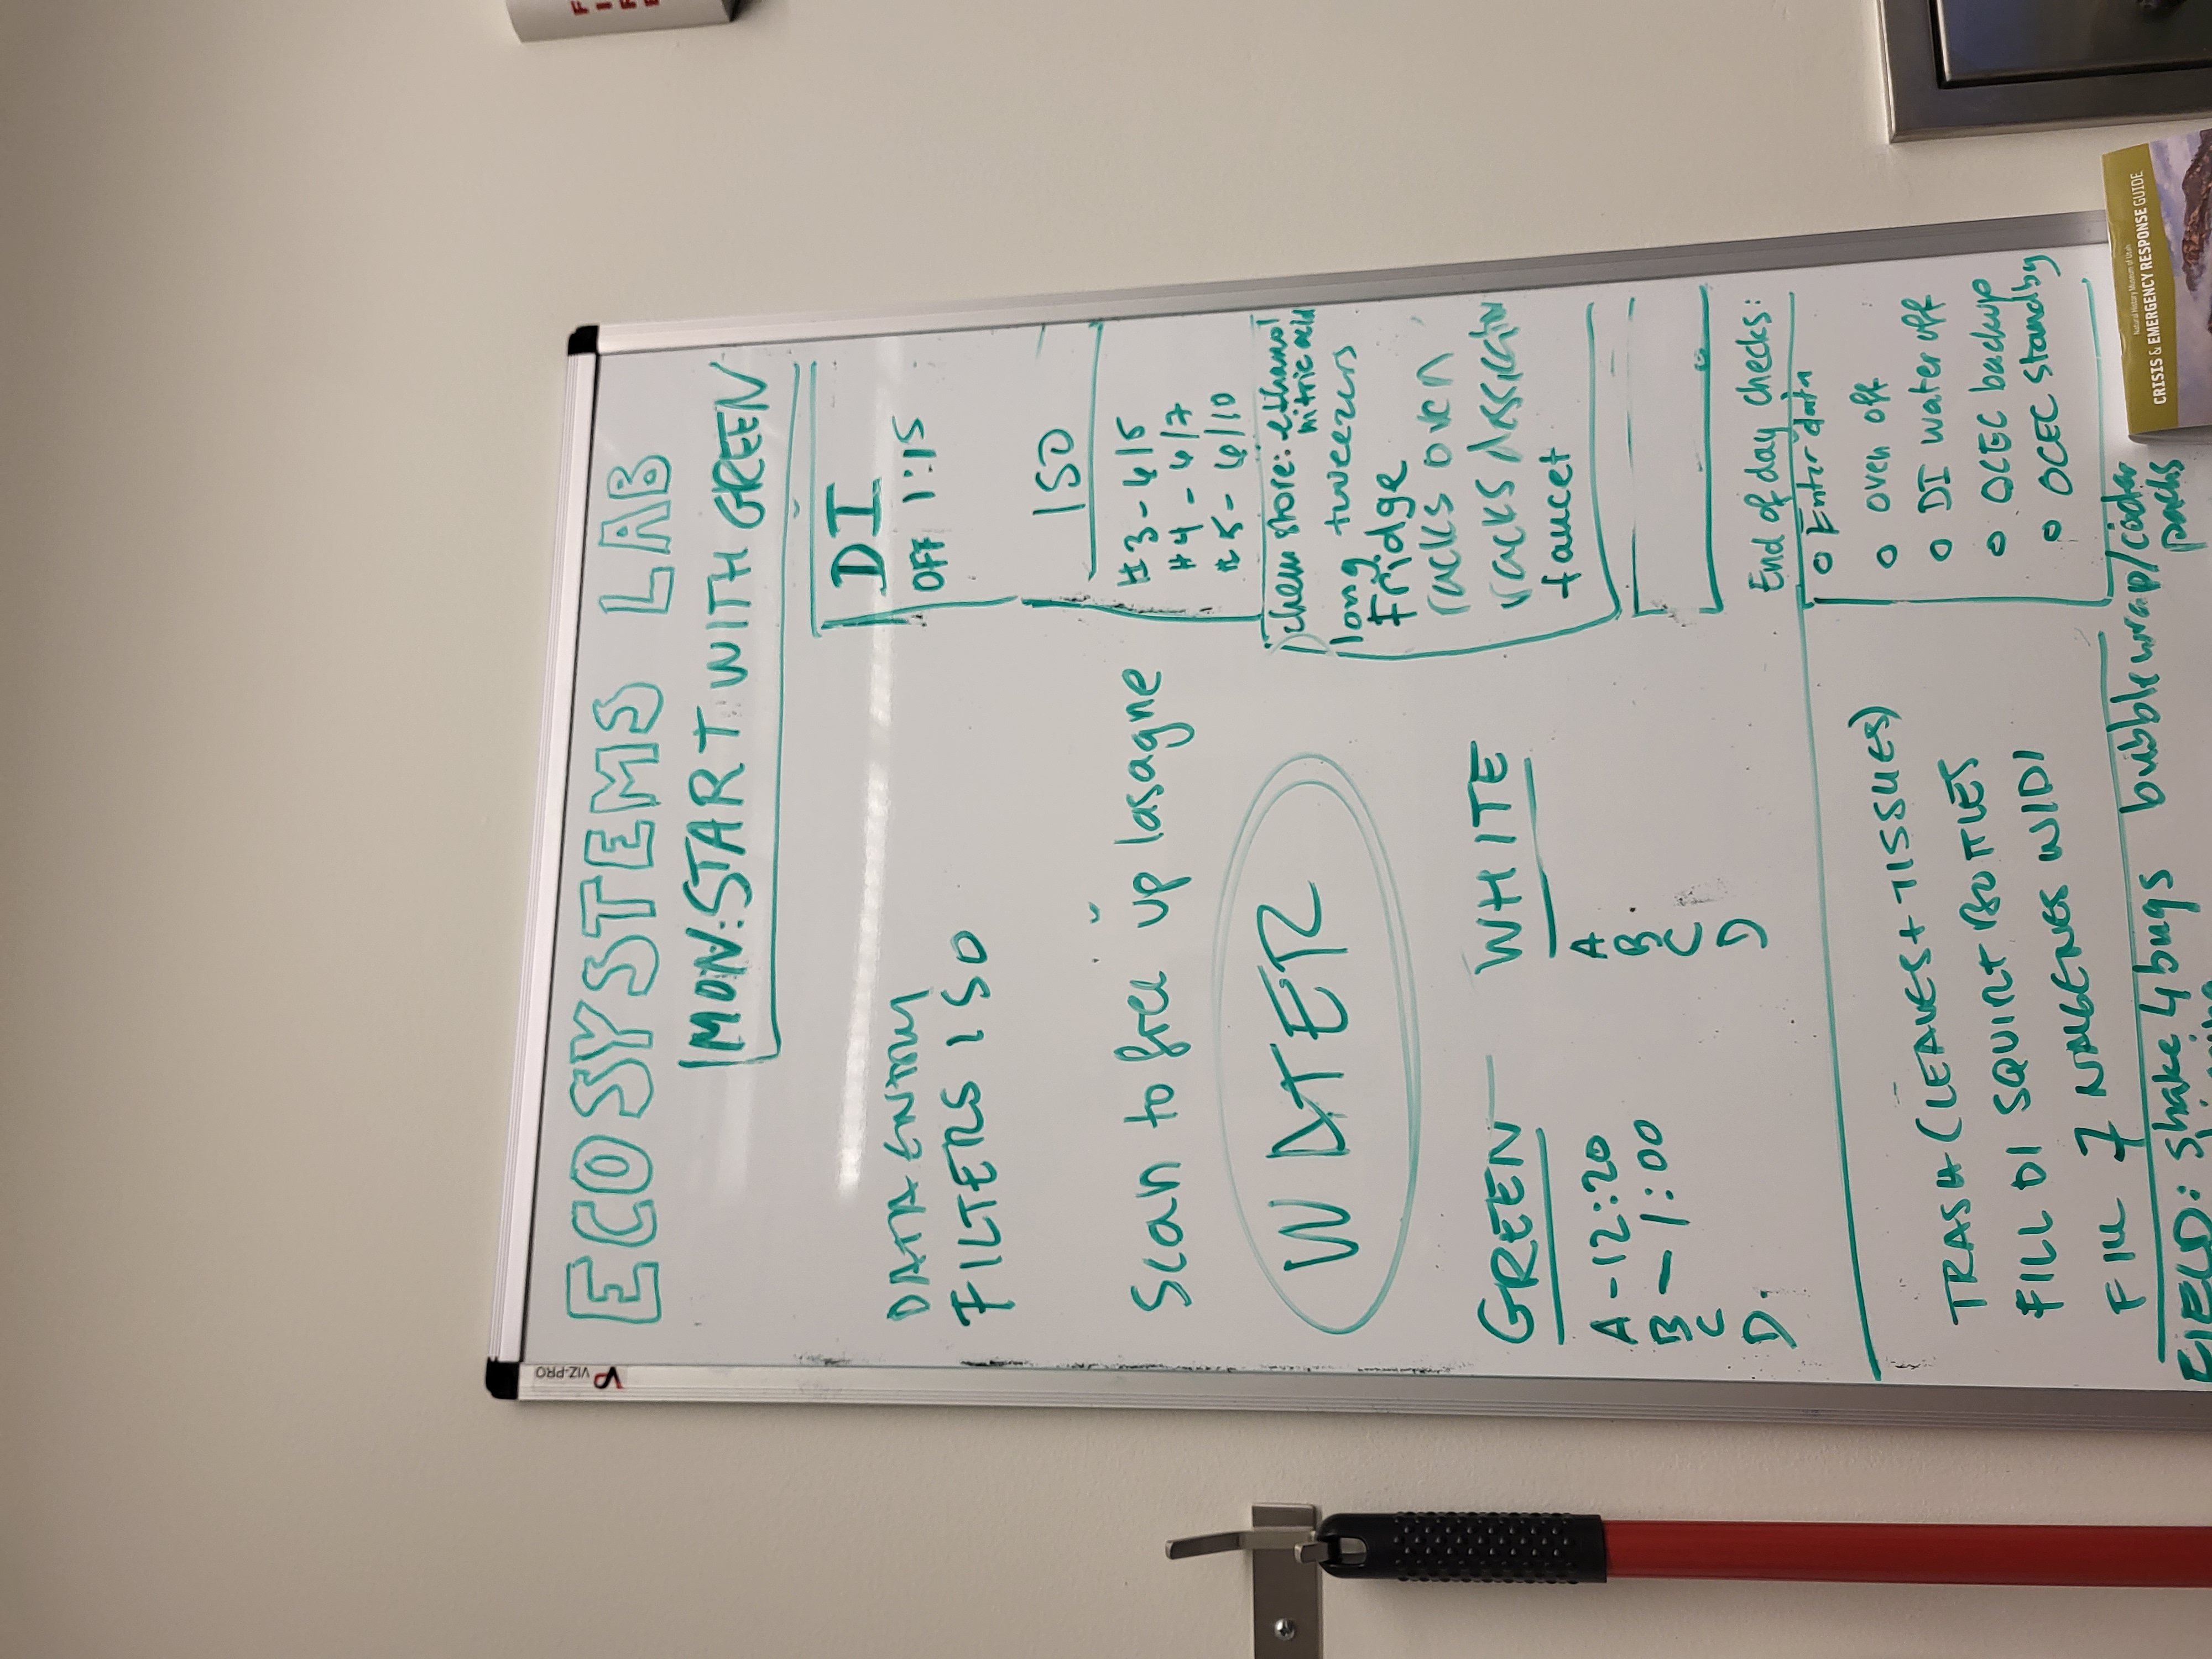 ECOSYSTEMS LAB
MON: START WITH GREEN
DI
OFF 1:15
DATA ENTRY
FILTERS ISO
ISO
#3 - 6/5
#4 - 6/7
#5 - 6/10
Scan to free up lasagne
WATER
chem store: ethanol
nitric acid
long tweezers
Fridge
racks oven
racks
faucet
GREEN
A - 12:20
B - 1:00
C
D.
WHITE
A
B
C
D
End of day checks:
o Enter data
o oven off
o DI water off
o OCEC backup
o OCEC standby
TRASH (LEAVES + TISSUES)
FILL DI SQUIRT BOTTLES
FILL 7 NALGENES W/DI
FIELD: shake 4 bugs bubblewrap/cooler
packs
VIZ-PRO
Natural History Museum of Utah
CRISIS & EMERGENCY RESPONSE GUIDE